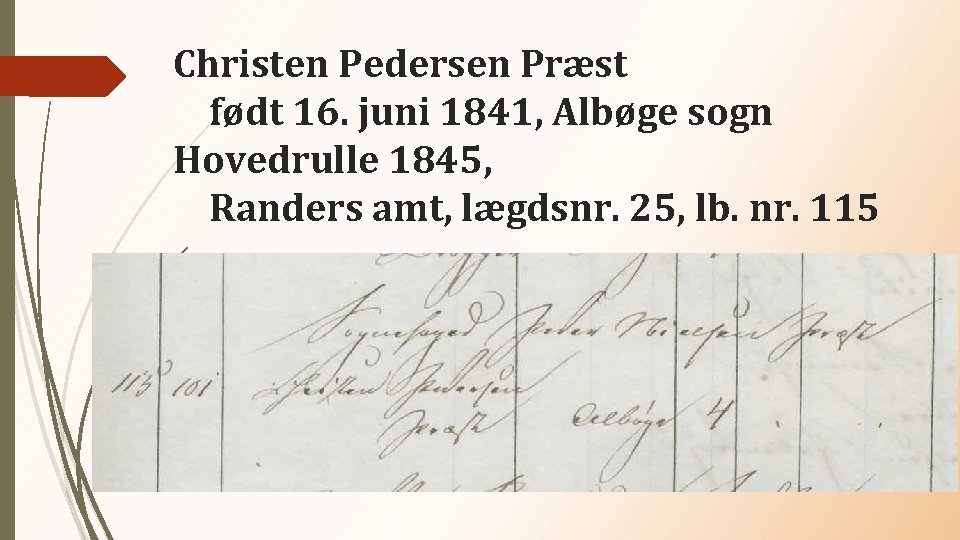 Christen Pedersen Præst
født 16. juni 1841, Albøge sogn
Hovedrulle 1845,
Randers amt, lægdsnr. 25, lb. nr. 115
Sognefoged Peder Nielsen Præst
115 101 Christen Pedersen
Præst Albøge 4